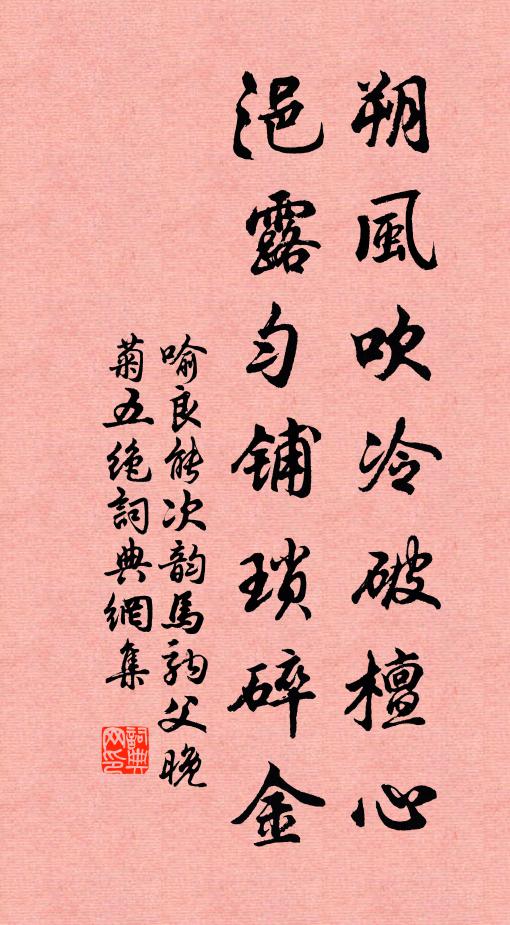 朔風吹冷破檀心
浥露勻鋪瑣碎金
喻良能次韵馬駒父晚
菊五絶詞典網集
詞典
网印